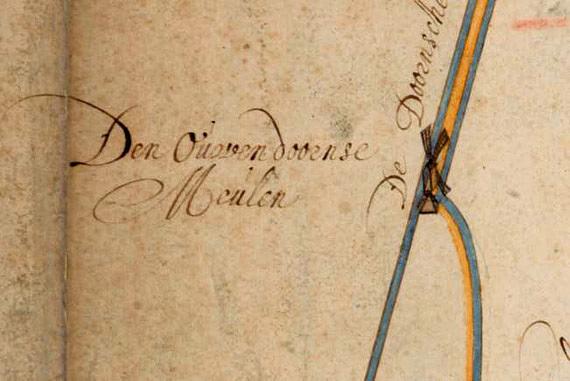 Den Ouwendoorense
Meulen
De Doornsche